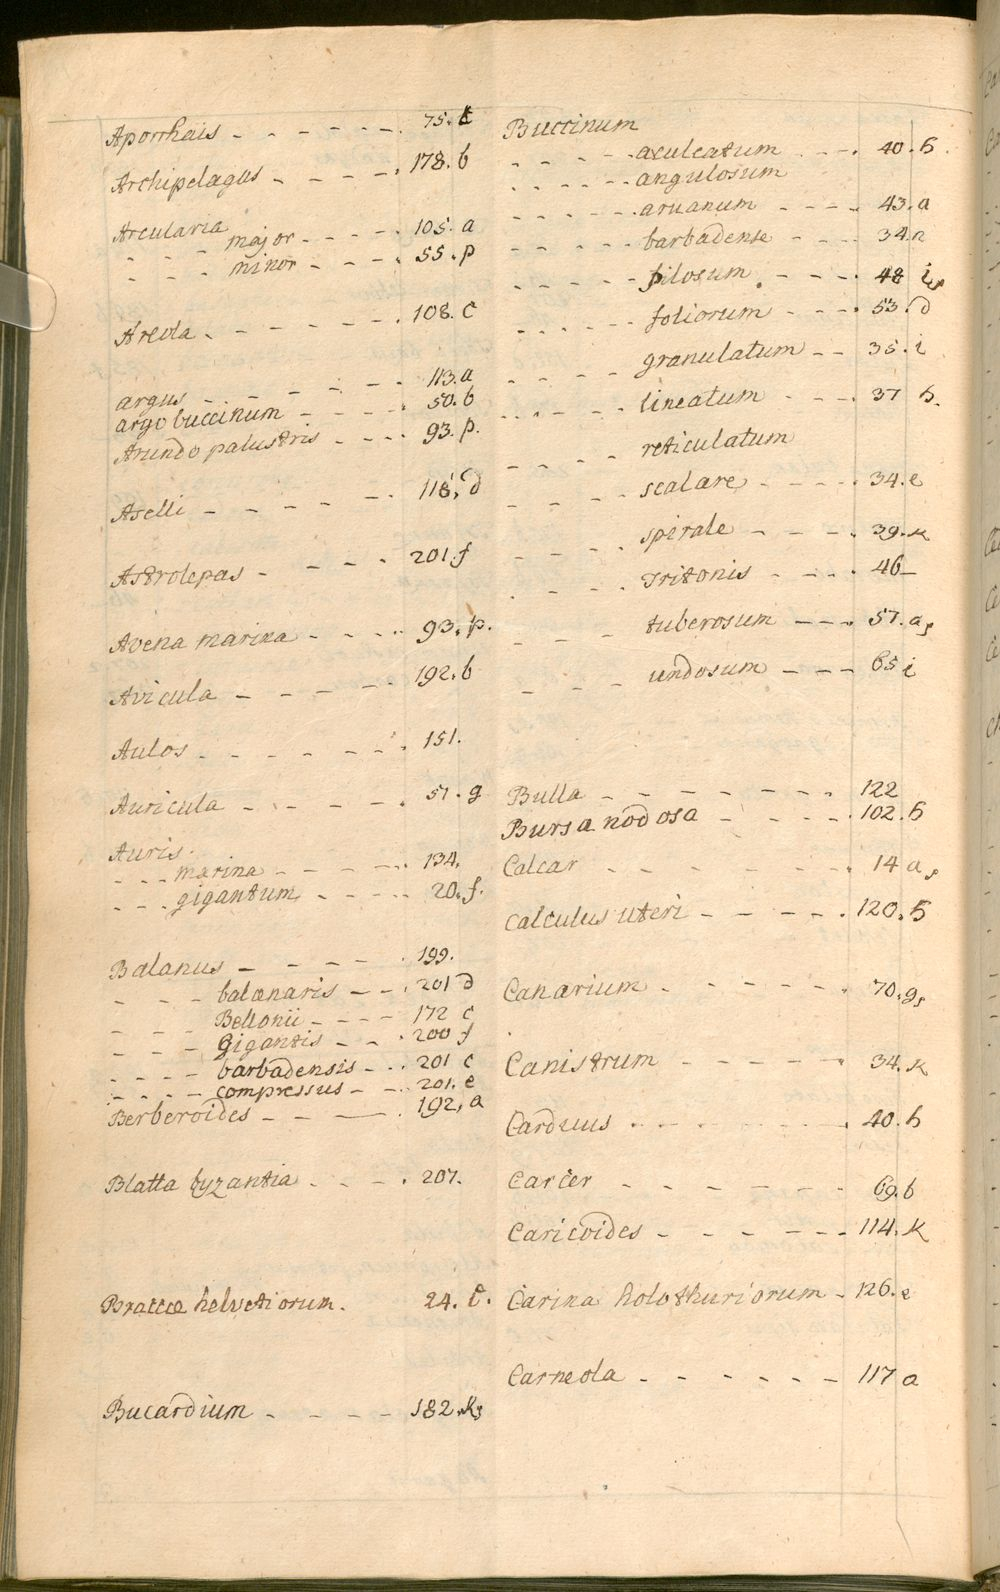 Aporrhais - - - - - - . 75. t
Archipelagus - - - - . 178. b
Arcularia
- - - major - - - - . 105. a
- - - minor - - - . 55. p
Areola - - - - - - . 108. c
argus - - - - - - 113. a
argobuccinum - - - - . 50. b
Arundo palustris - - - . 93. p.
Aselli - - - - - - 118. d
Astrolepas - - - - 201. f
Avena marina - - - - 93. p.
Avicula - - - - - 192. b
Aulos - - - - - - . 151.
Auricula - - - - - . 51. g
Auris.
- - - marina - - - - - . 134.
- - - gigantum - - - - 20. f.
Balanus - - - - - . 199.
- - - balænaris - - . 201 d
- - - Bellonii - - - - 172 c
- - - Gigantis - - . 200 f
- - - - barbadensis - . . 201 c
- - - - compressus - - . 201. e
Berberoides - - — . 192, a
Blatta byzantia - - - . 207.
Braccæ helvetiorum. 24. c.
Bucardium - - - - - 182. k
Buccinum
- - - - - aculeatum - - - . 40. h.
- - - - - angulosum
- - - - - aruanum - - - - 43. a
- - - - barbadense - - - 34. n
- - - - - pilosum - - - - 48 i
- - - - - foliorum - - - - 53. d
- - - - granulatum - - 35. i
- - - - - lineatum - - - . 37 h.
- - - - reticulatum
- - - scalare - - - - . 34. e
- - - - spirale - - - - 39. k
- - - - Tritonis - - - . 46
- - - tuberosum - - - . 57. a
- - - - undosum - - - . 65 i
Bulla - - - - - - - . 122
Bursa nodosa - - - - . 102. h
Calcar - - - - - . 14 a
Calculus uteri - - - - - . 120. h
Canarium - - - - - - . 70. g
Canistrum - - - - - 34. k
Carduus - - - - - - . 40. h
Carcer - - - - - - - 69. b
Caricoides - - - - - - 114. k
Carina holothuriorum - 126. e
Carneola - - - - - - 117 a